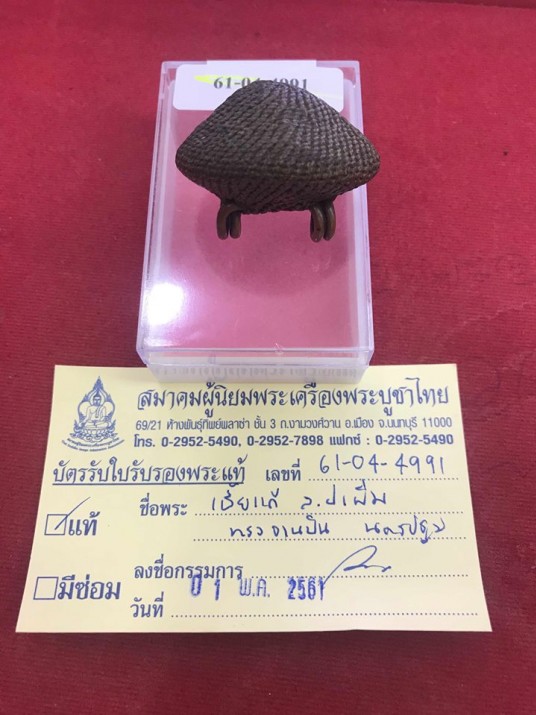 61-04-4991
สมาคมผู้นิยมพระเครื่องพระบูชาไทย
69/21 ห้างพันธุ์ทิพย์พลาซ่า ชั้น 3 ถ.งามวงศ์วาน อ.เมือง จ.นนทบุรี 11000
โทร. 0-2952-5490, 0-2952-7898 แฟกซ์ : 0-2952-5490
บัตรรับใบรับรองพระแท้ เลขที่ 61-04-4991
ชื่อพระ เบี้ยแก้ ล.ป.เพิ่ม
แท้
ทรง จานบิน นครปฐม
ลงชื่อกรรมการ
มีซ่อม
วันที่ 01 พ.ค. 2561